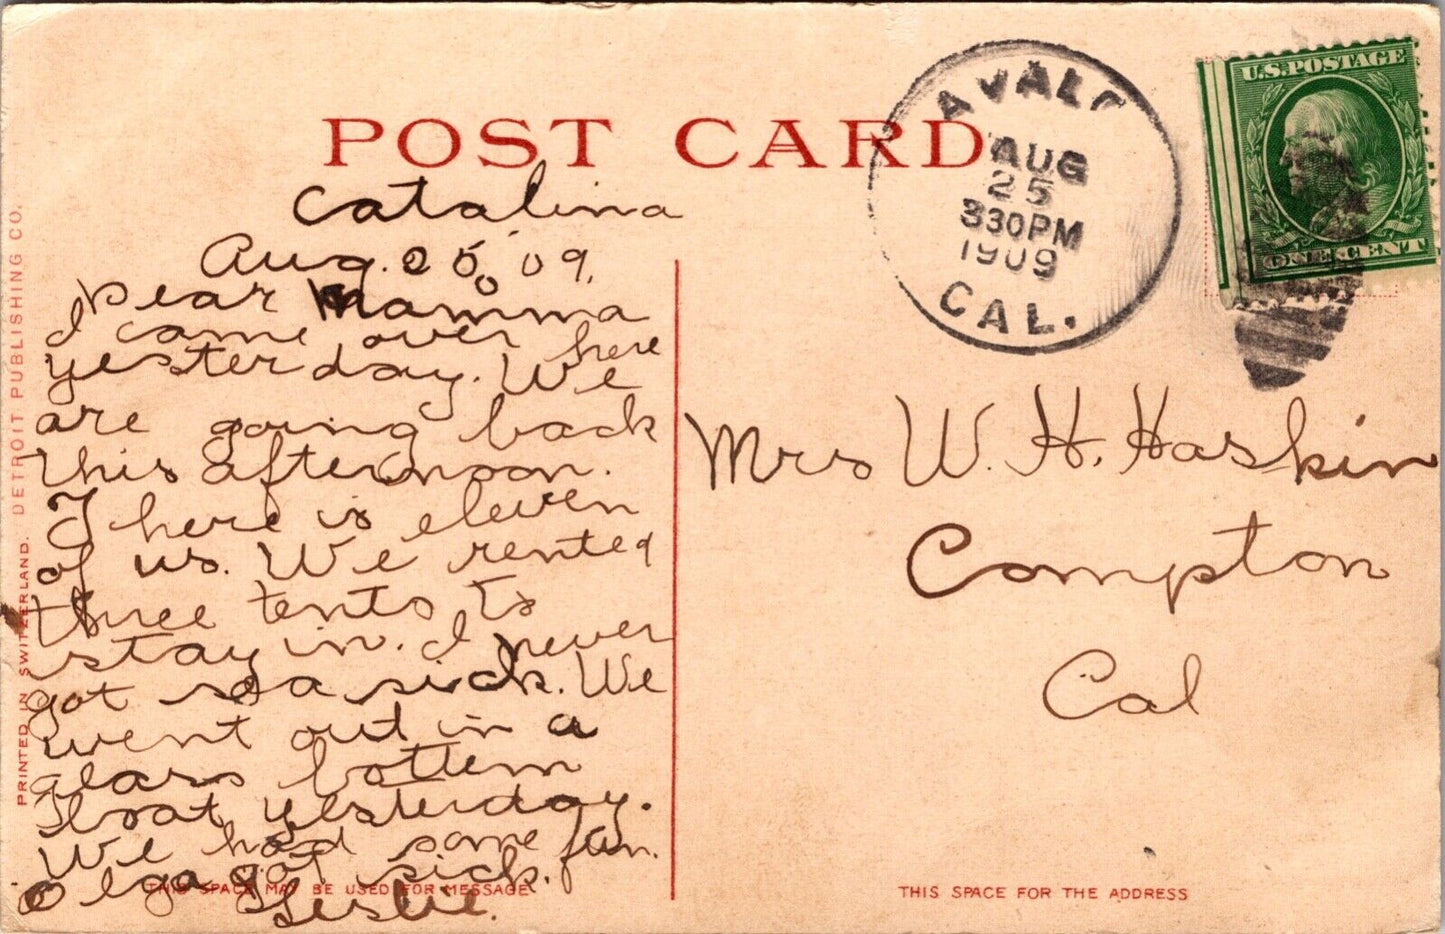 POST CARD
Catalina
Aug. 25, 09.
Dear Mamma
I came over here
yesterday. We
are going back
this afternoon.
There is eleven
of us. We rented
three tents to
stay in. I never
got sea sick. We
went out in a
glass bottem
boat yesterday.
We had some fun.
Olga got sick.
Leslie.
THIS SPACE MAY BE USED FOR MESSAGE
PRINTED IN SWITZERLAND. DETROIT PUBLISHING CO.
AVALO
AUG
25
330PM
1909
CAL.
U.S. POSTAGE
ONE CENT
Mrs W. H. Haskin
Compton
Cal
THIS SPACE FOR THE ADDRESS